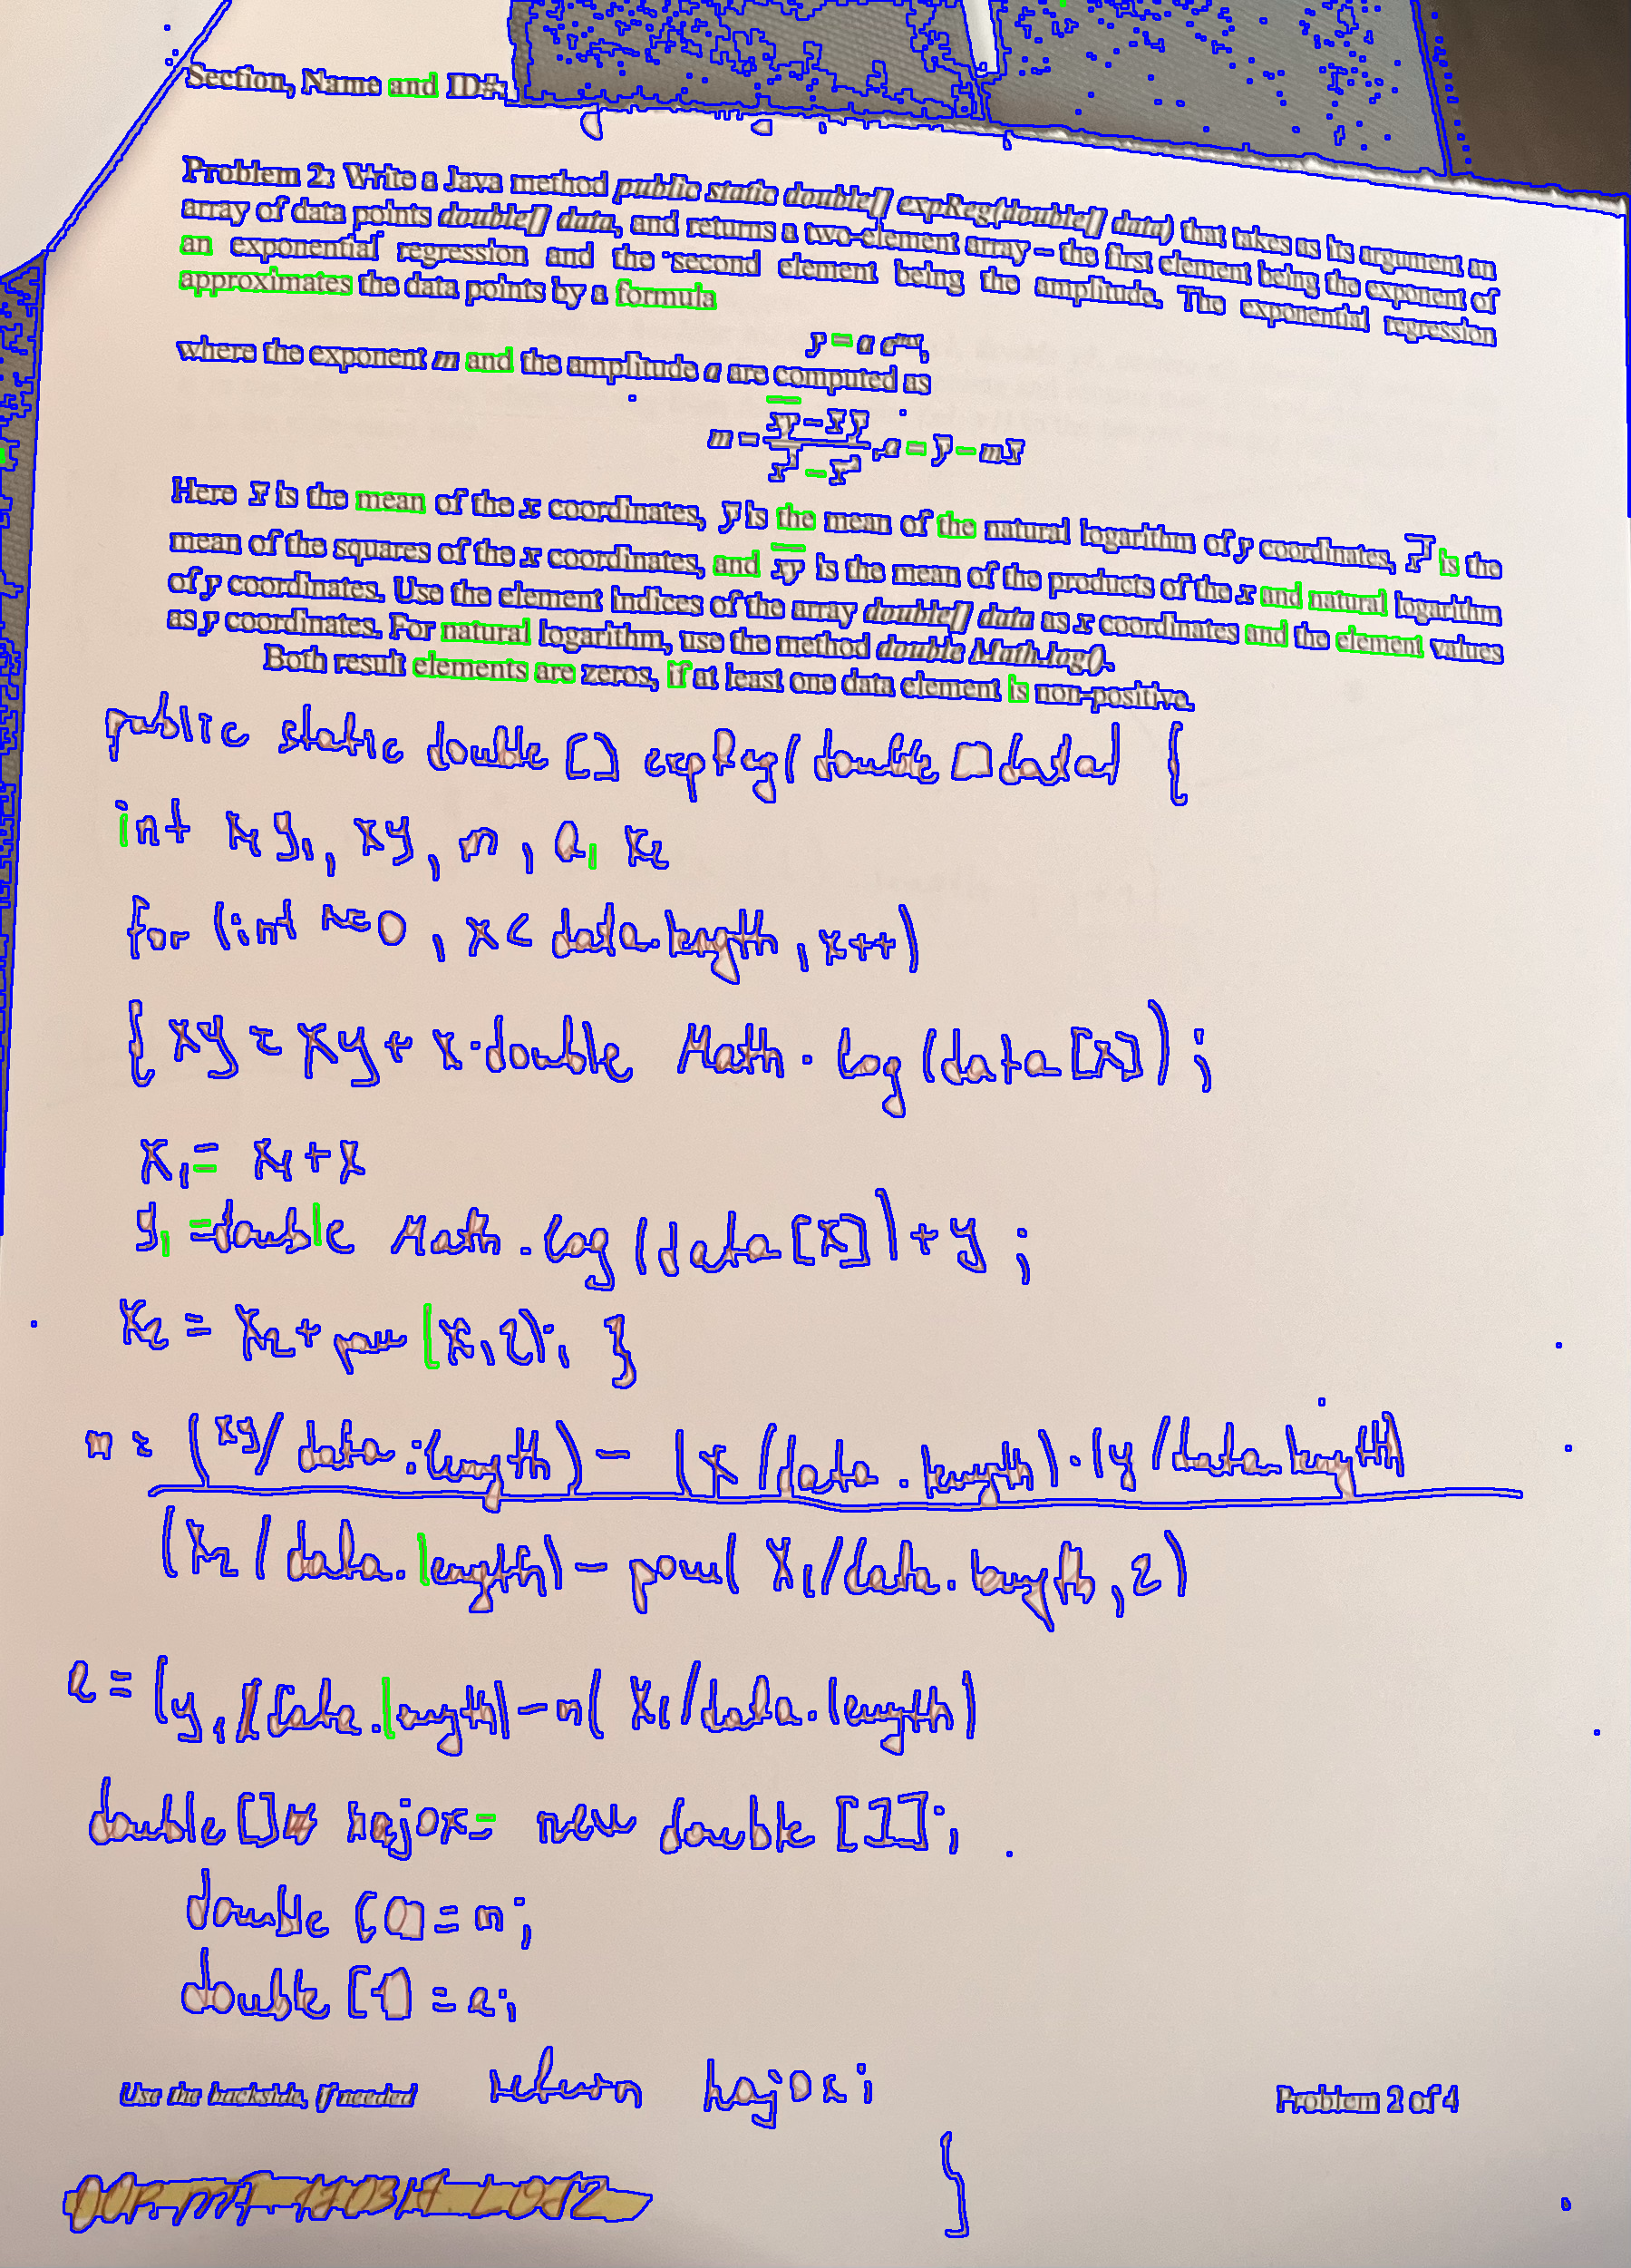 Section, Name and ID#:
Problem 2: Write a Java method public static double[] expReg(double[] data) that takes as its argument an
array of data points double[] data, and returns a two-element array – the first element being the exponent of
an exponential regression and the second element being the amplitude. The exponential regression
approximates the data points by a formula
y = a e^{mx},
where the exponent m and the amplitude a are computed as
m = \frac{\overline{xy} - \overline{x}\,\overline{y}}{\overline{x^2} - \overline{x}^2}, a = \overline{y} - m\overline{x}
Here x̅ is the mean of the x coordinates, y̅ is the mean of the natural logarithm of y coordinates, \overline{x^2} is the
mean of the squares of the x coordinates, and \overline{xy} is the mean of the products of the x and natural logarithm
of y coordinates. Use the element indices of the array double[] data as x coordinates and the element values
as y coordinates. For natural logarithm, use the method double Math.log().
Both result elements are zeros, if at least one data element is non-positive.
public static double [] expReg(double [] data) {
int x₁ y₁, xy, m, a, x₂
for (int x=0, x< data.length, x++)
{ xy = xy + x·double Math.log(data[x]);
x₁ = x₁ + x
y₁ = double Math.log(data[x]) + y;
x₂ = x₂ + pow(x,2); }
m = (xy/data.length) - (x/data.length)·(y/data.length)
(x₂/data.length) - pow(x₁/data.length,2)
a = (y₁/data.length) - m(x₁/data.length)
double [] hajox = new double [1];
double [0] = m;
double [1] = a;
Use the backside, if needed return hajox;
Problem 2 of 4
}